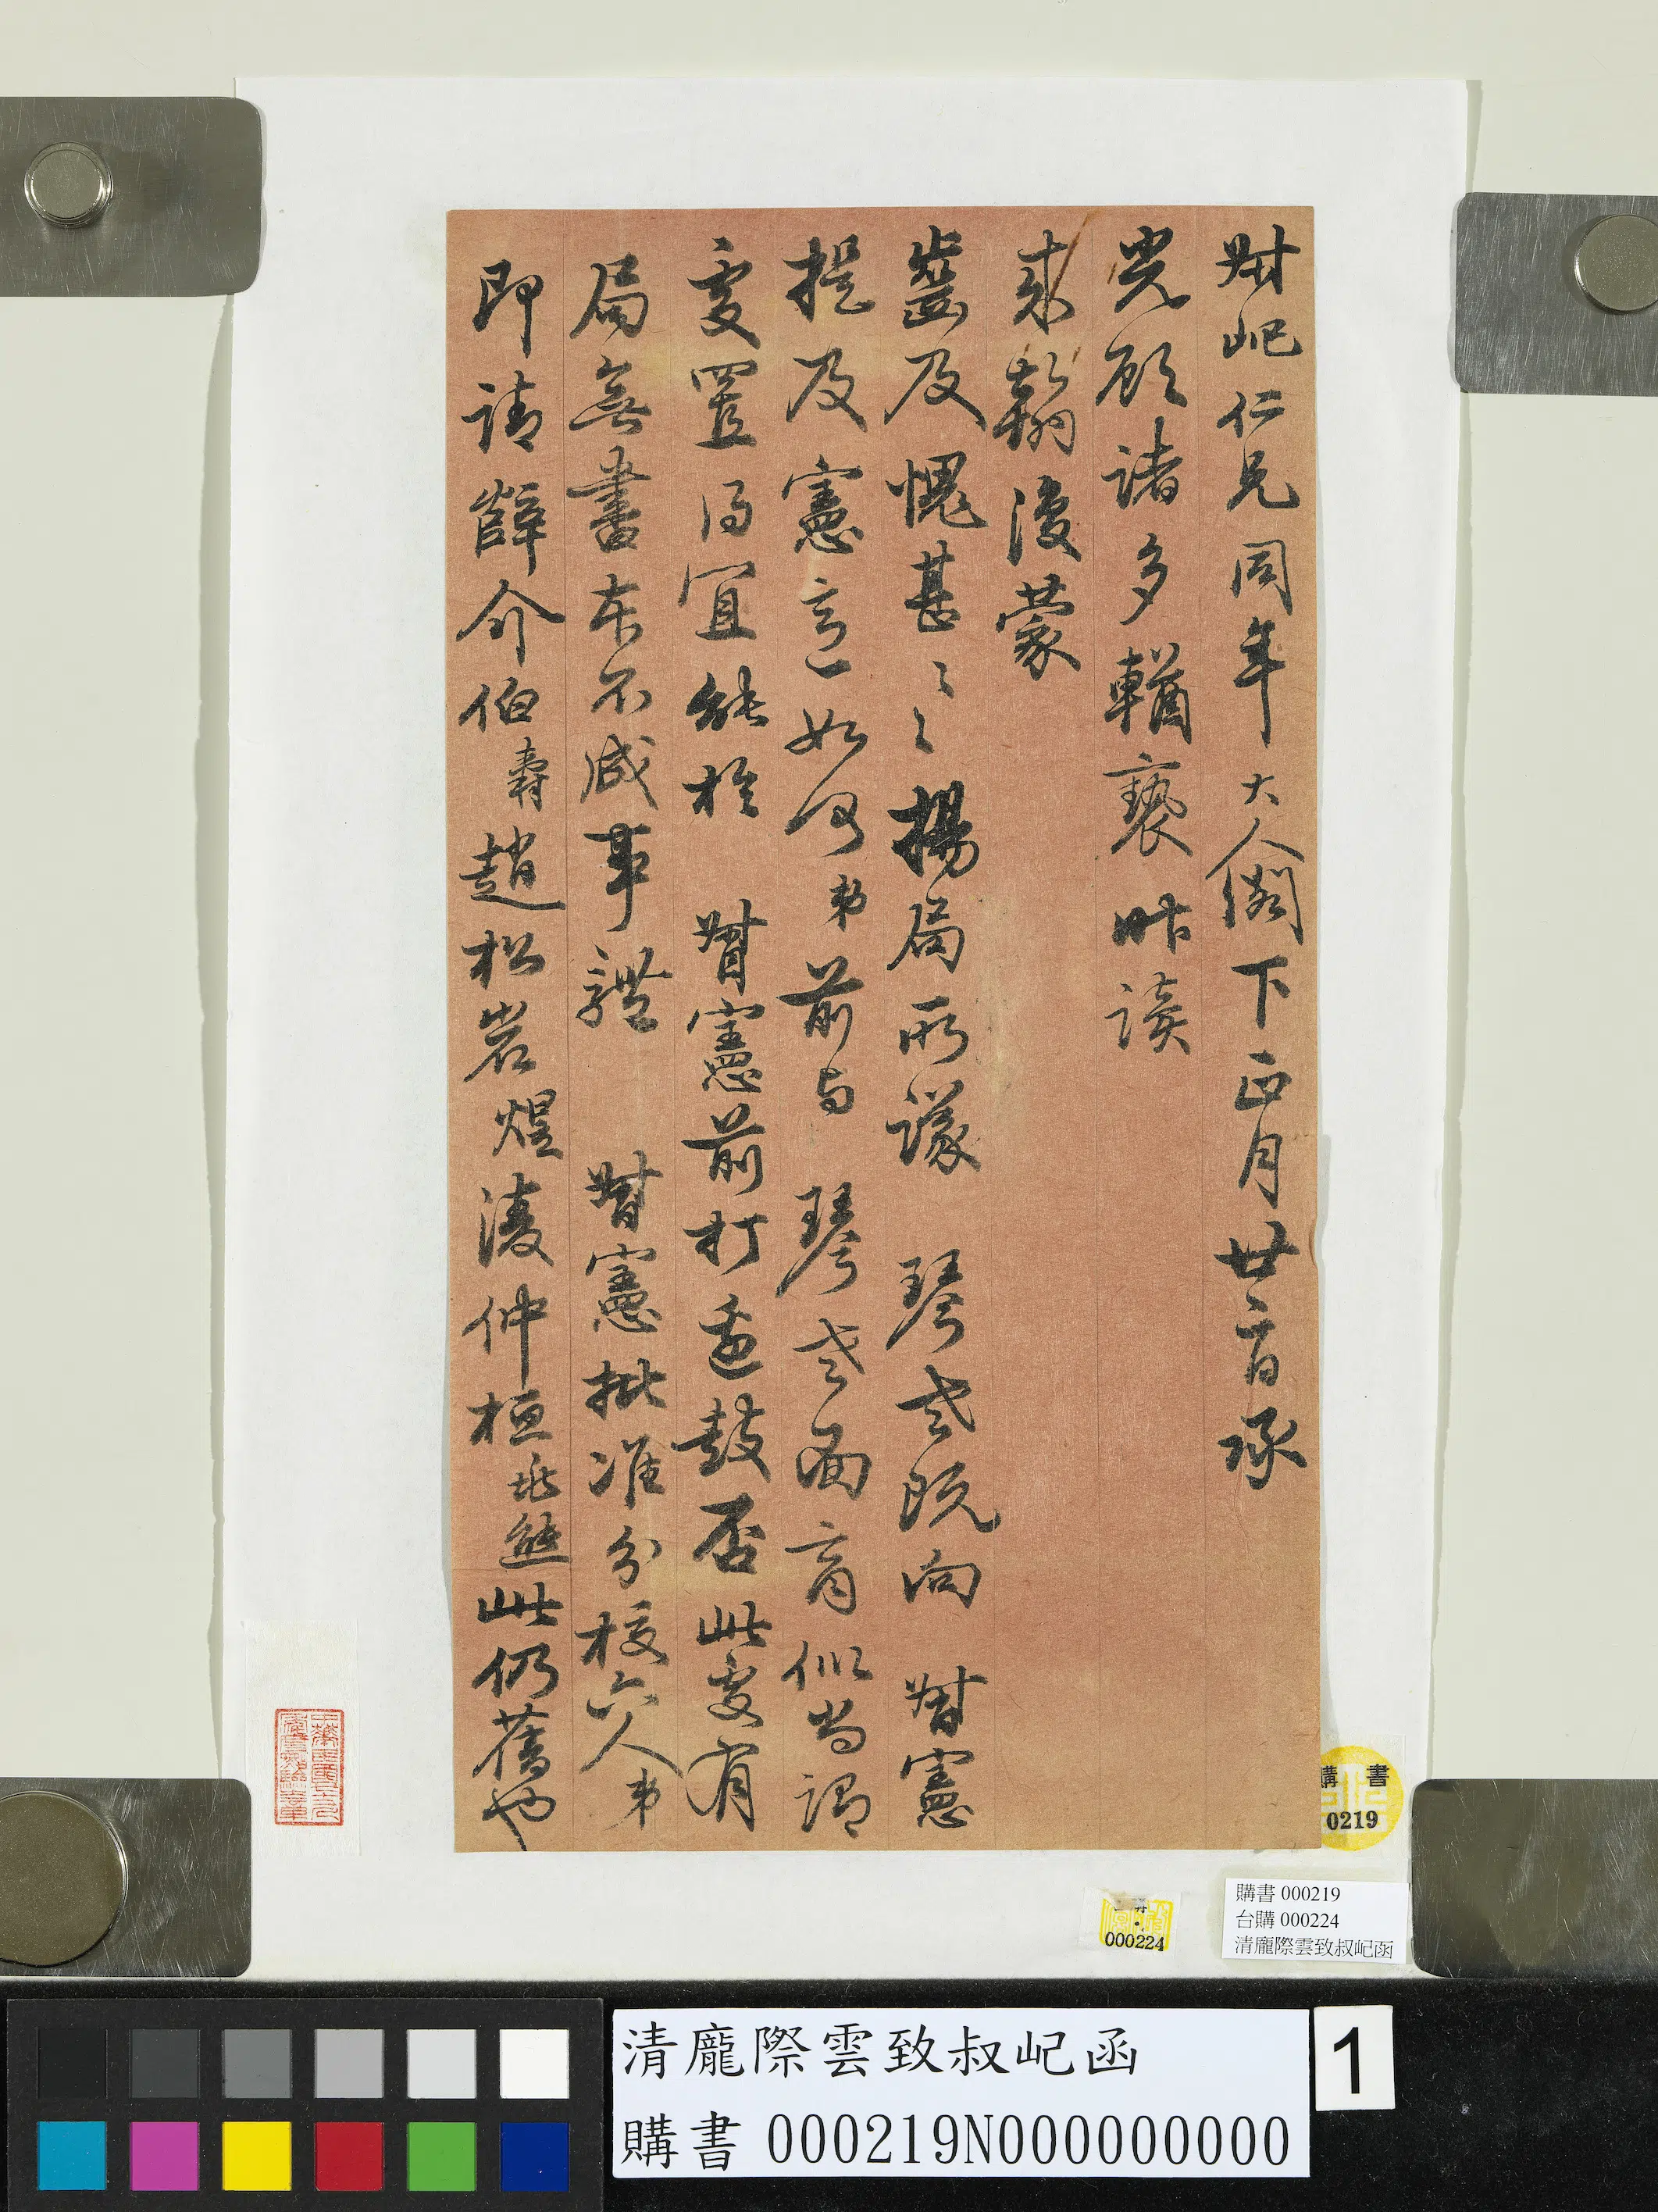 叔屺仁兄同年大人閣下正月廿二日承
光顧諸多輶褻昨讀
來翰復蒙
齒及愧甚々々揚局所議 琴老既向 督憲
提及憲意如何弟前與 琴老面商似尚謂
處置得宜能於 督憲前打邊鼓否此處有
局無書本不成事體 督憲批准分校六人弟
即請薛介伯壽趙松岩煜淩仲桓 此仍舊也
購書
0219
000224
購書 000219
台購 000224
清龐際雲致叔屺函
清龐際雲致叔屺函
購書 000219N000000000
1